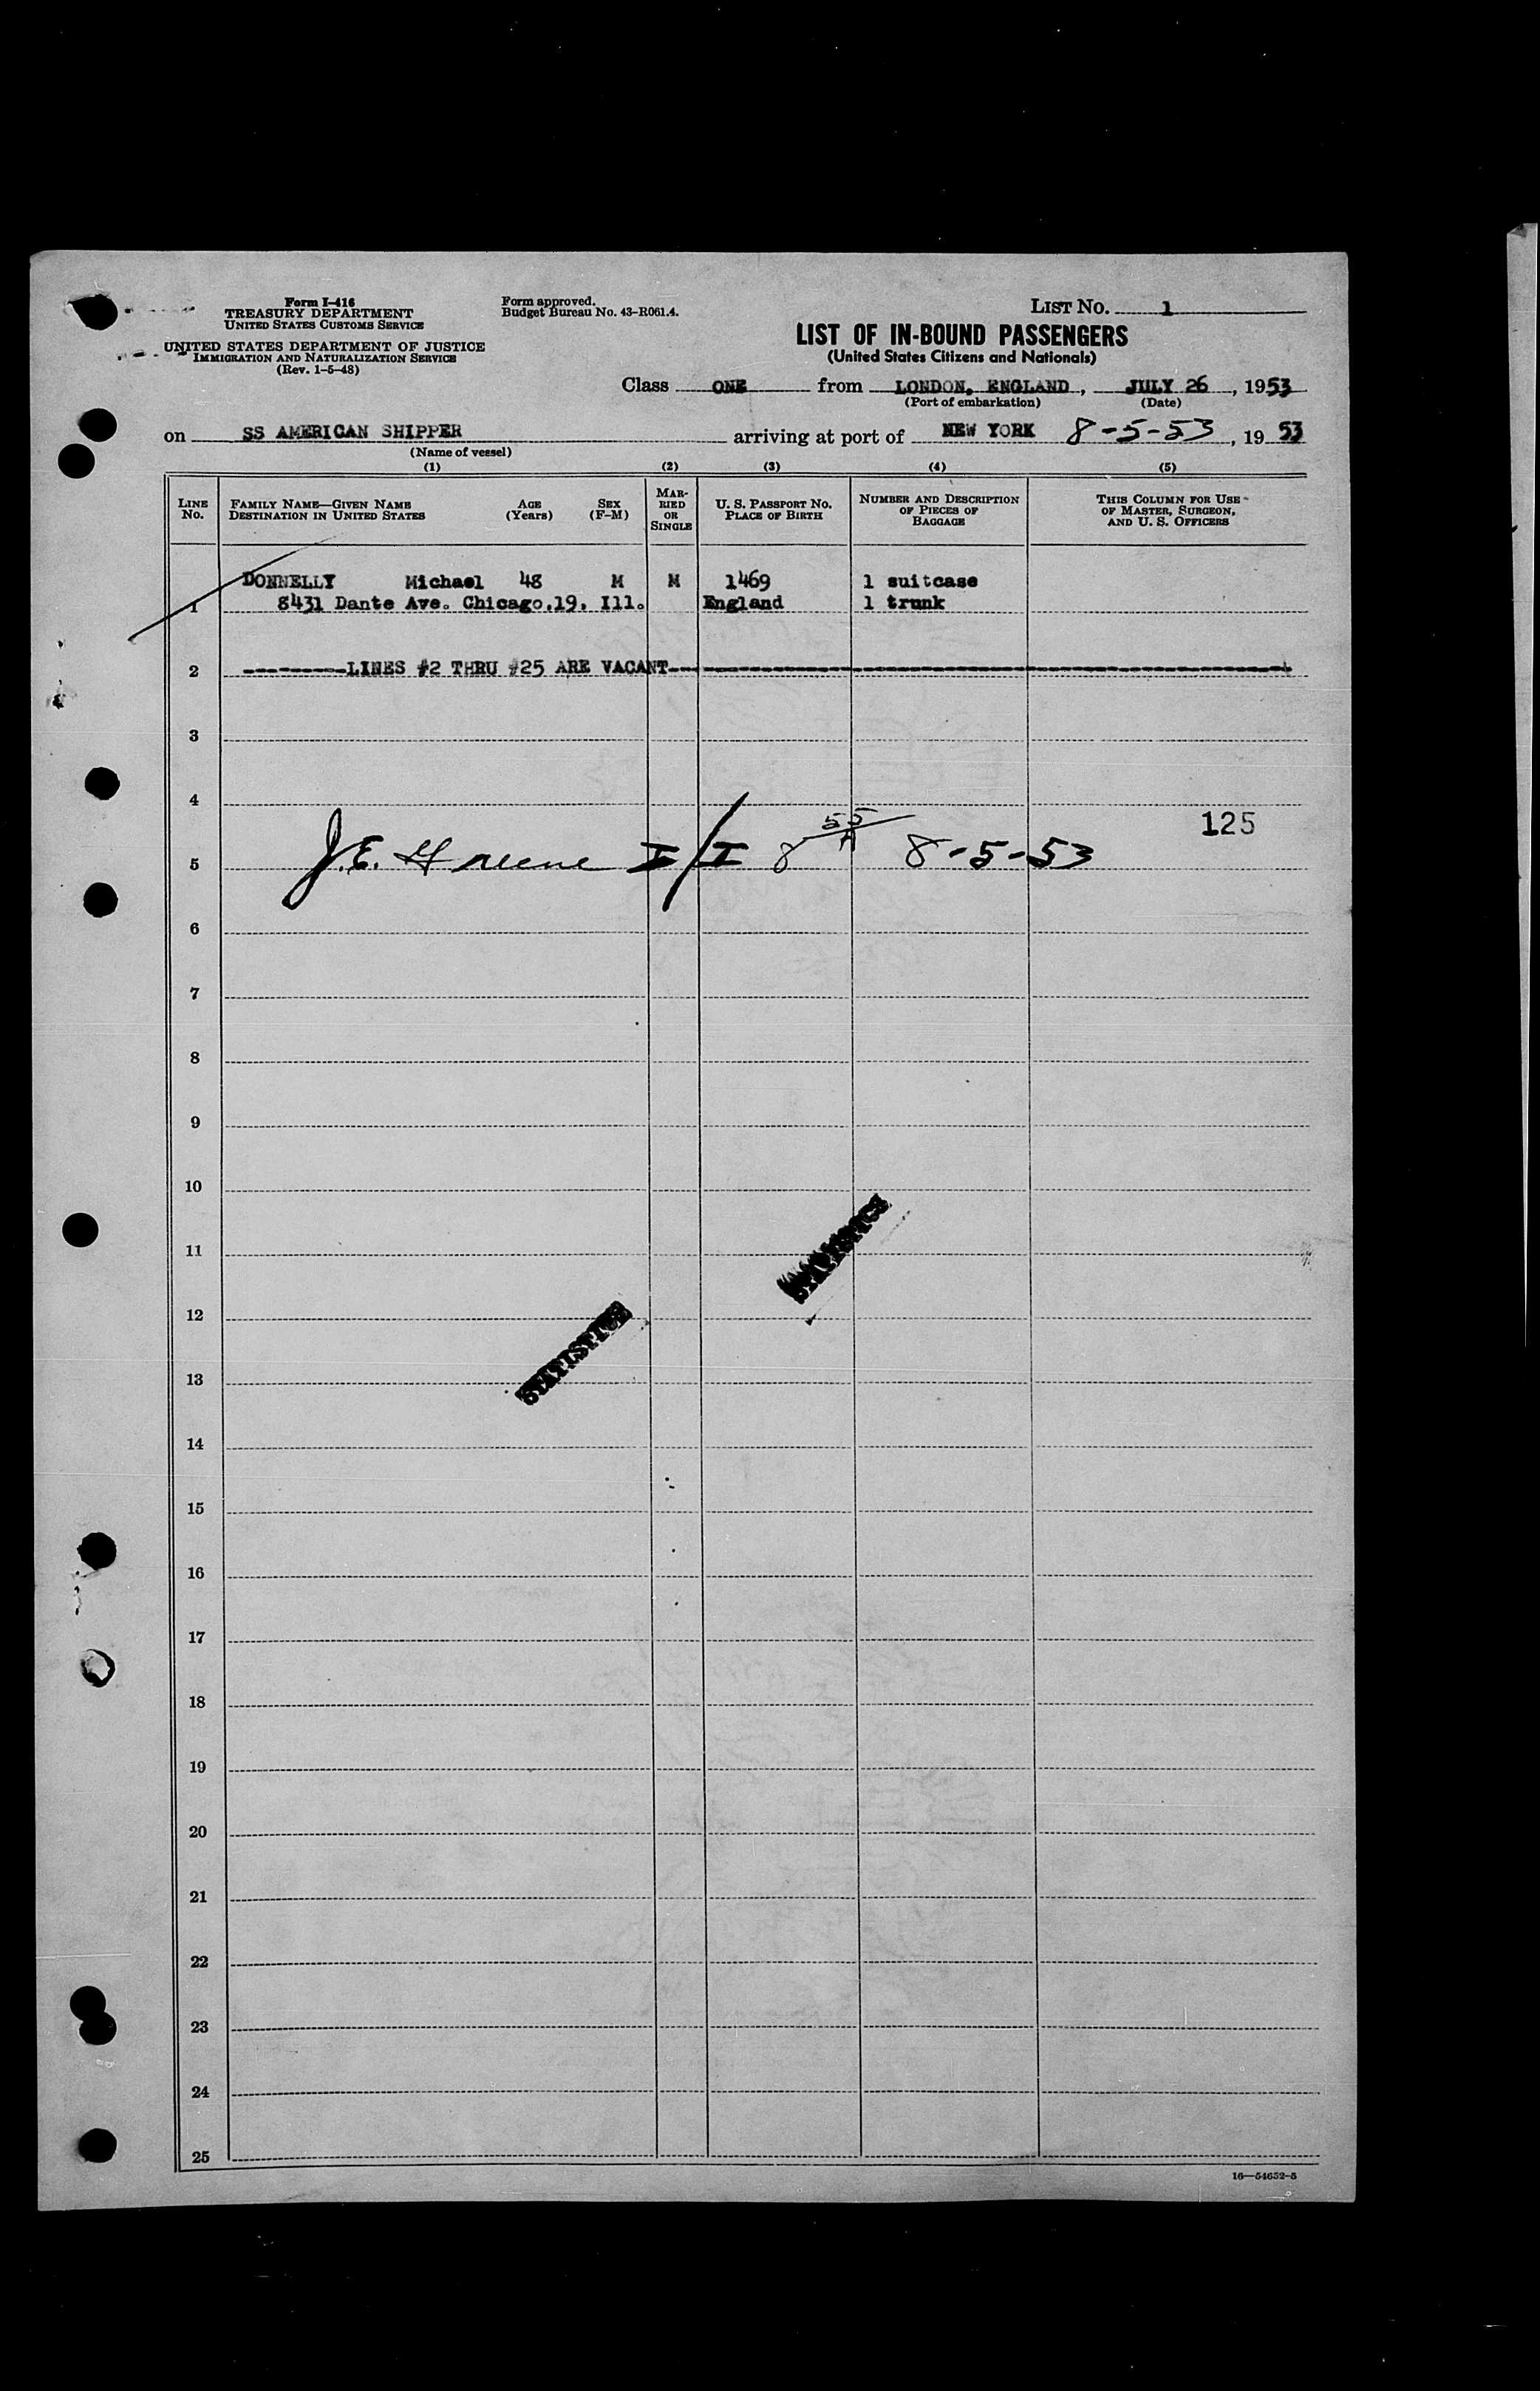 Form I-416
TREASURY DEPARTMENT
UNITED STATES CUSTOMS SERVICE
UNITED STATES DEPARTMENT OF JUSTICE
IMMIGRATION AND NATURALIZATION SERVICE
(Rev. 1-5-48)
Form approved.
Budget Bureau No. 43-R061.4.
LIST No. 1
LIST OF IN-BOUND PASSENGERS
(United States Citizens and Nationals)
Class ONE from LONDON, ENGLAND, JULY 26, 1953
(Port of embarkation) (Date)
on SS AMERICAN SHIPPER arriving at port of NEW YORK 8-5-53, 19 53
(Name of vessel)
(1) (2) (3) (4) (5)
LINE No.
FAMILY NAME—GIVEN NAME
DESTINATION IN UNITED STATES
AGE (Years)
SEX (F-M)
MAR-
RIED
OR
SINGLE
U. S. PASSPORT NO.
PLACE OF BIRTH
NUMBER AND DESCRIPTION
OF PIECES OF
BAGGAGE
THIS COLUMN FOR USE
OF MASTER, SURGEON,
AND U. S. OFFICERS
DONNELLY Michael 48 M M 1469 1 suitcase
1 8431 Dante Ave. Chicago,19, Ill. England 1 trunk
2 ---------LINES #2 THRU #25 ARE VACANT---
3
4
125
5 J.E. Greene I/I 8 55/A 8-5-53
6
7
8
9
10
11 STATISTICS
12
13 STATISTICS
14
15
16
17
18
19
20
21
22
23
24
25
16—54652-5